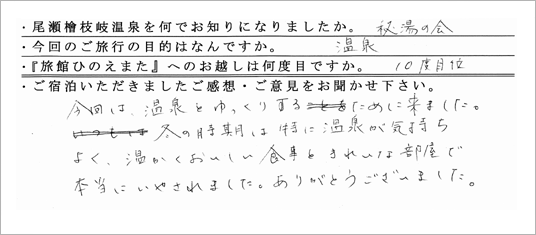 ・尾瀬檜枝岐温泉を何でお知りになりましたか。 秘湯の会
・今回のご旅行の目的はなんですか。 温泉
・『旅館ひのえまた』へのお越しは何度目ですか。 10度目位
・ご宿泊いただきましたご感想・ご意見をお聞かせ下さい。
今回は、温泉とゆっくりするために来ました。
冬の時期は特に温泉が気持ち
よく、温かくおいしい食事ときれいな部屋で
本当にいやされました。ありがとうございました。